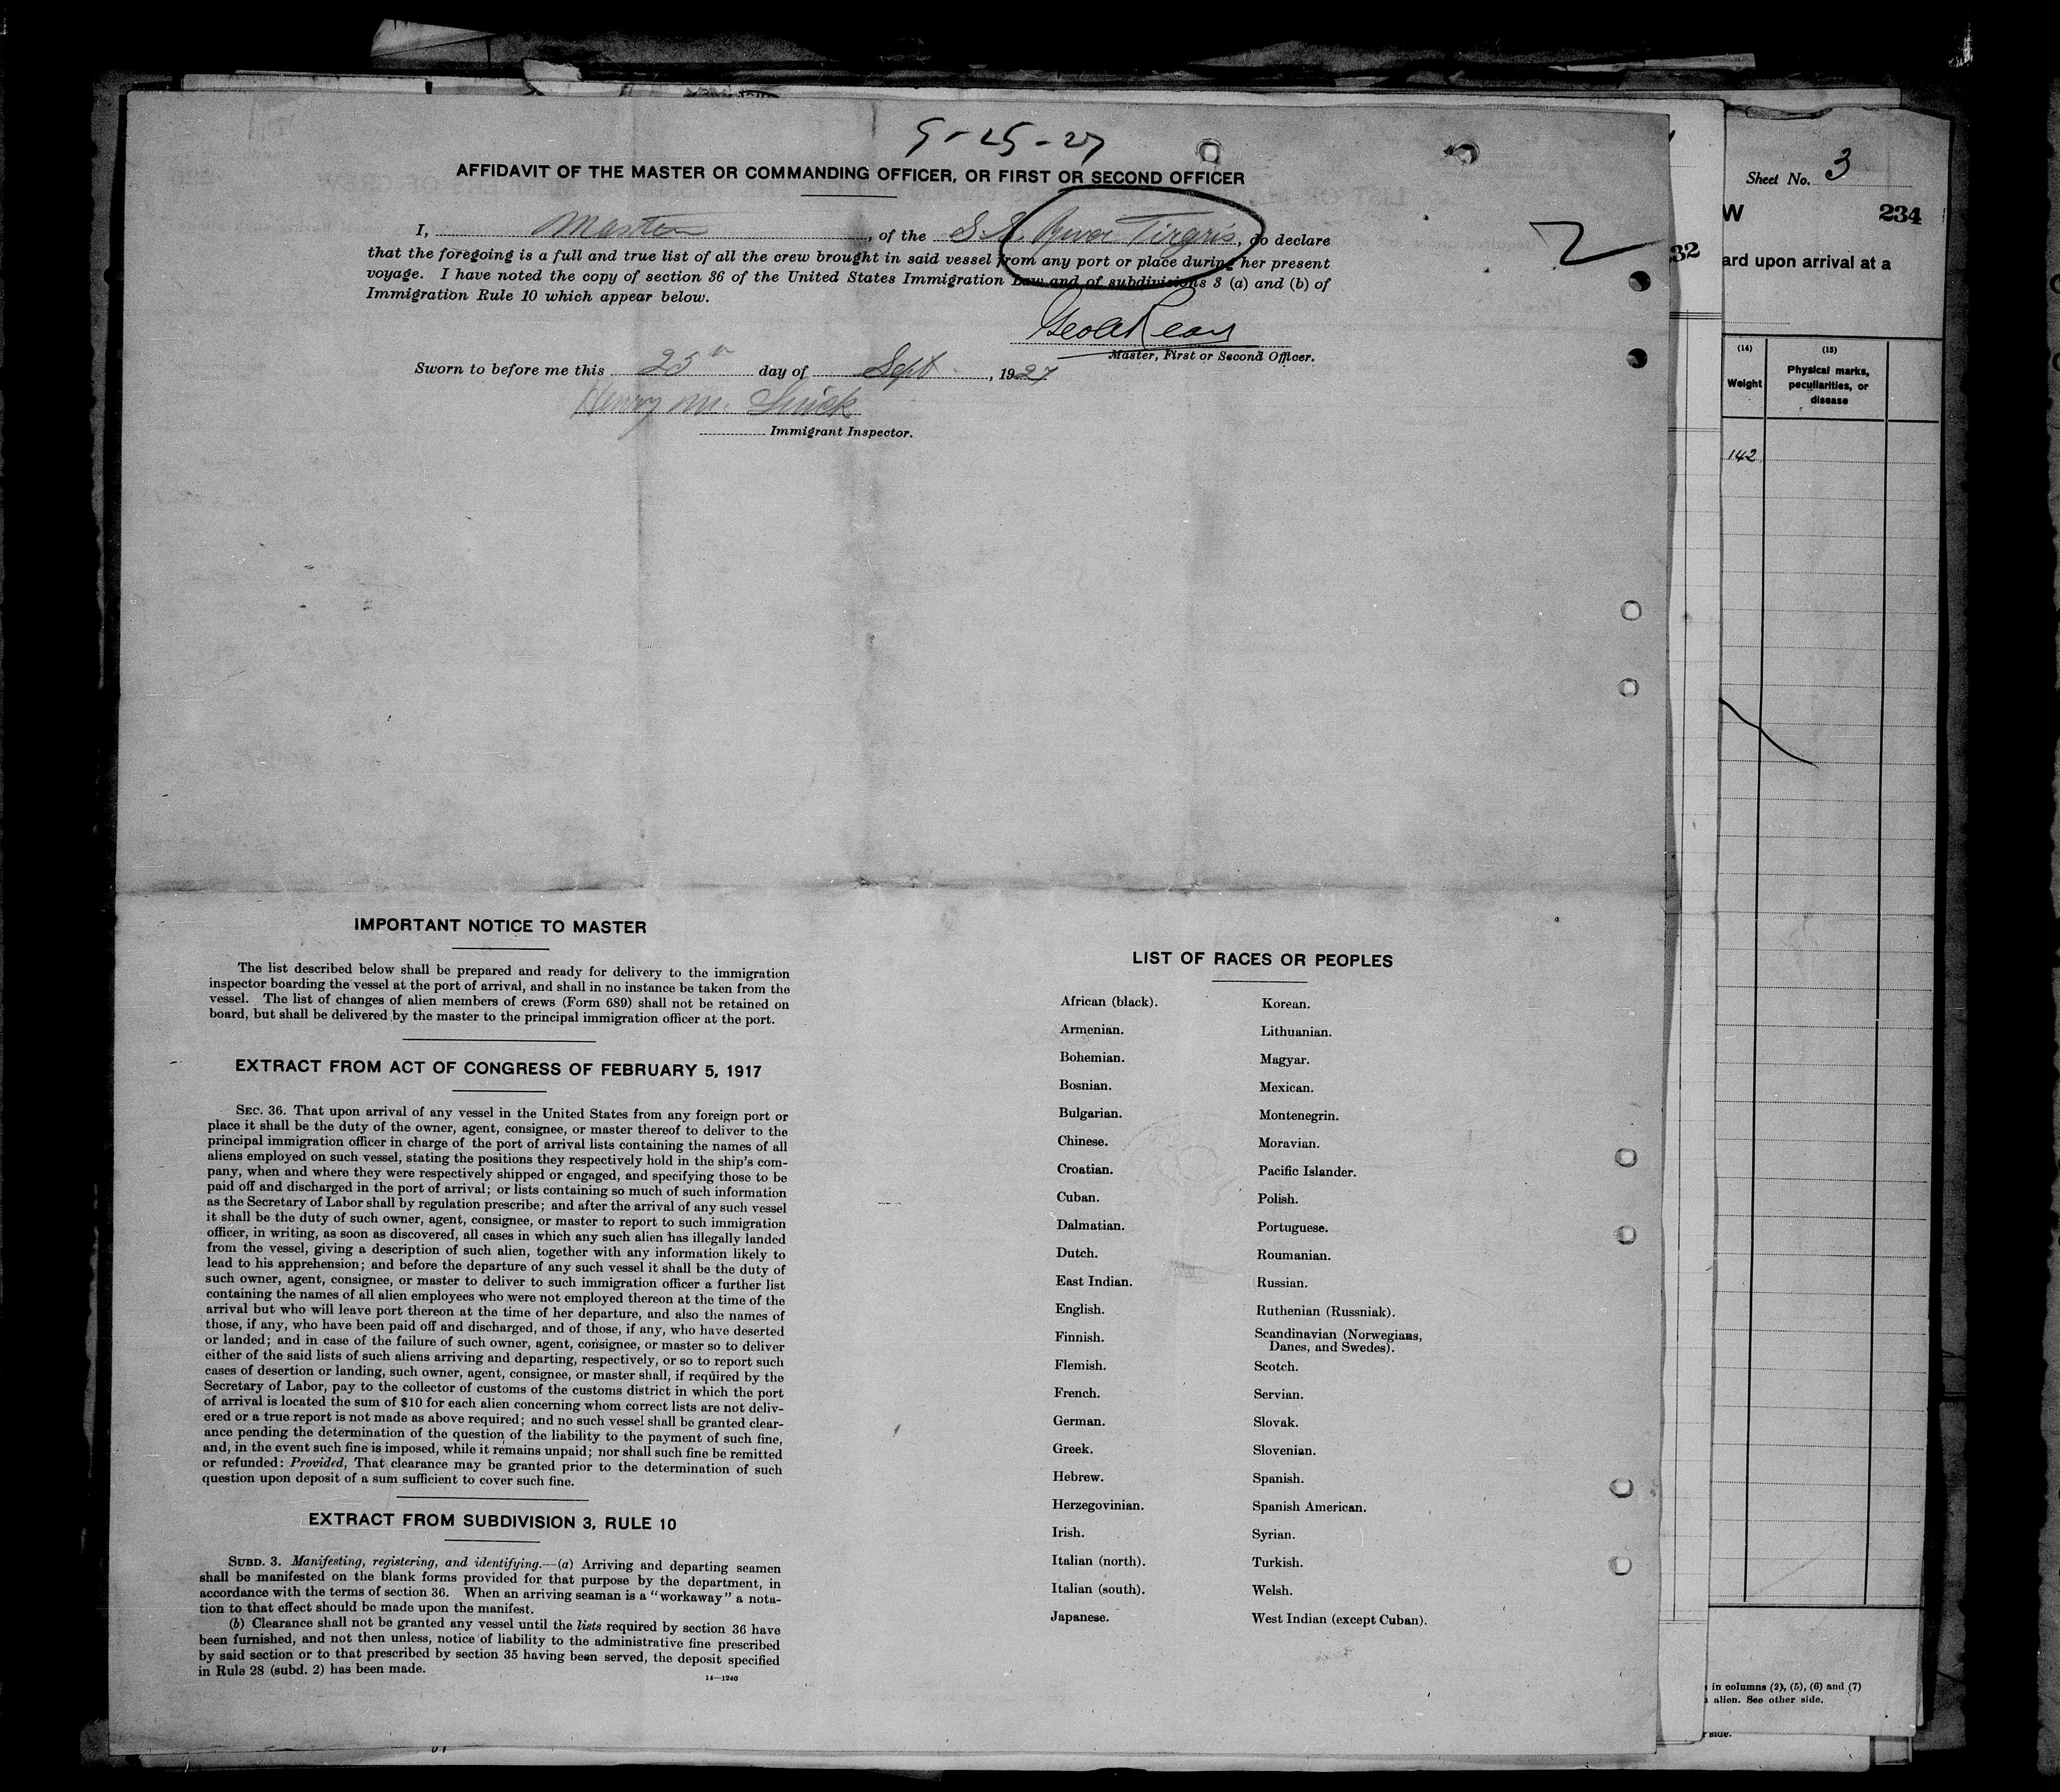 9-25-27
AFFIDAVIT OF THE MASTER OR COMMANDING OFFICER, OR FIRST OR SECOND OFFICER
I, Master, of the S.S. River Tirgris, do declare
that the foregoing is a full and true list of all the crew brought in said vessel from any port or place during her present
voyage. I have noted the copy of section 36 of the United States Immigration Law and of subdivisions 3 (a) and (b) of
Immigration Rule 10 which appear below.
Master, First or Second Officer.
Sworn to before me this 25th day of Sept, 1927
Henry M.
Immigrant Inspector.
2
IMPORTANT NOTICE TO MASTER
The list described below shall be prepared and ready for delivery to the immigration
inspector boarding the vessel at the port of arrival, and shall in no instance be taken from the
vessel. The list of changes of alien members of crews (Form 689) shall not be retained on
board, but shall be delivered by the master to the principal immigration officer at the port.
EXTRACT FROM ACT OF CONGRESS OF FEBRUARY 5, 1917
SEC. 36. That upon arrival of any vessel in the United States from any foreign port or
place it shall be the duty of the owner, agent, consignee, or master thereof to deliver to the
principal immigration officer in charge of the port of arrival lists containing the names of all
aliens employed on such vessel, stating the positions they respectively hold in the ship's com-
pany, when and where they were respectively shipped or engaged, and specifying those to be
paid off and discharged in the port of arrival; or lists containing so much of such information
as the Secretary of Labor shall by regulation prescribe; and after the arrival of any such vessel
it shall be the duty of such owner, agent, consignee, or master to report to such immigration
officer, in writing, as soon as discovered, all cases in which any such alien has illegally landed
from the vessel, giving a description of such alien, together with any information likely to
lead to his apprehension; and before the departure of any such vessel it shall be the duty of
such owner, agent, consignee, or master to deliver to such immigration officer a further list
containing the names of all alien employees who were not employed thereon at the time of the
arrival but who will leave port thereon at the time of her departure, and also the names of
those, if any, who have been paid off and discharged, and of those, if any, who have deserted
or landed; and in case of the failure of such owner, agent, consignee, or master so to deliver
either of the said lists of such aliens arriving and departing, respectively, or so to report such
cases of desertion or landing, such owner, agent, consignee, or master shall, if required by the
Secretary of Labor, pay to the collector of customs of the customs district in which the port
of arrival is located the sum of $10 for each alien concerning whom correct lists are not deliv-
ered or a true report is not made as above required; and no such vessel shall be granted clear-
ance pending the determination of the question of the liability to the payment of such fine,
and, in the event such fine is imposed, while it remains unpaid; nor shall such fine be remitted
or refunded: Provided, That clearance may be granted prior to the determination of such
question upon deposit of a sum sufficient to cover such fine.
EXTRACT FROM SUBDIVISION 3, RULE 10
SUBD. 3. Manifesting, registering, and identifying.—(a) Arriving and departing seamen
shall be manifested on the blank forms provided for that purpose by the department, in
accordance with the terms of section 36. When an arriving seaman is a "workaway" a nota-
tion to that effect should be made upon the manifest.
(b) Clearance shall not be granted any vessel until the lists required by section 36 have
been furnished, and not then unless, notice of liability to the administrative fine prescribed
by said section or to that prescribed by section 35 having been served, the deposit specified
in Rule 28 (subd. 2) has been made.
14—1240
LIST OF RACES OR PEOPLES
African (black). Korean.
Armenian. Lithuanian.
Bohemian. Magyar.
Bosnian. Mexican.
Bulgarian. Montenegrin.
Chinese. Moravian.
Croatian. Pacific Islander.
Cuban. Polish.
Dalmatian. Portuguese.
Dutch. Roumanian.
East Indian. Russian.
English. Ruthenian (Russniak).
Finnish. Scandinavian (Norwegians,
Danes, and Swedes).
Flemish. Scotch.
French. Servian.
German. Slovak.
Greek. Slovenian.
Hebrew. Spanish.
Herzegovinian. Spanish American.
Irish. Syrian.
Italian (north). Turkish.
Italian (south). Welsh.
Japanese. West Indian (except Cuban).
32
Sheet No. 3
W 234
ard upon arrival at a
(14) (15)
Weight
Physical marks,
peculiarities, or
disease
142
in columns (2), (5), (6) and (7)
alien. See other side.
side.